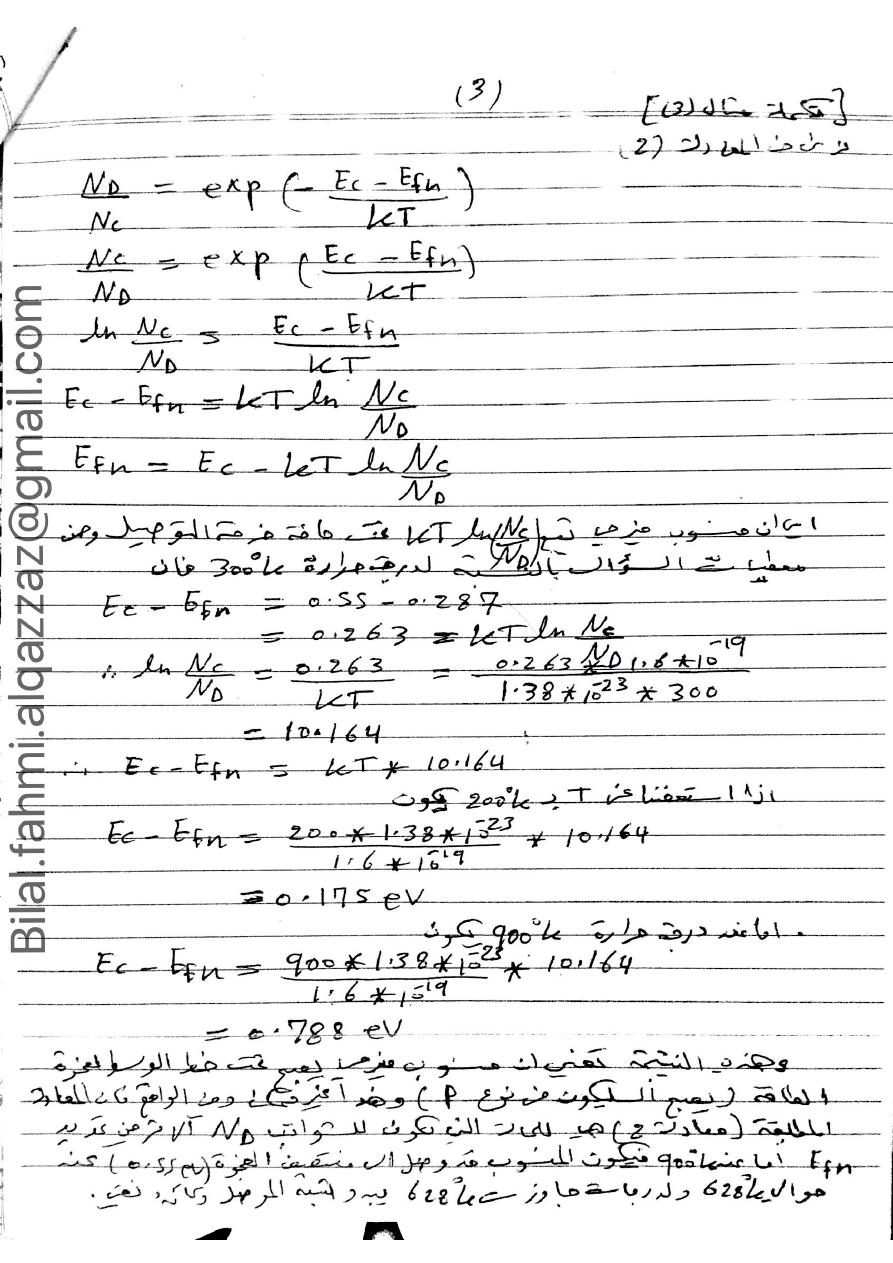 (3)
[تكملة مثال (3)]
من المعادلة (2)
N_D / N_C = exp (- (E_C - E_fn) / kT)
N_C / N_D = exp ((E_C - E_fn) / kT)
ln N_C / N_D = (E_C - E_fn) / kT
E_C - E_fn = kT ln N_C / N_D
E_fn = E_C - kT ln N_C / N_D
اي ان منسوب فيرمي تقع kT ln(N_C/N_D) تحت حافة حزمة التوصيل ومن
معطيات السؤال بالنسبة لدرجة حرارة 300°k فان
E_C - E_fn = 0.55 - 0.287
= 0.263 = kT ln N_C / N_D
∴ ln N_C / N_D = 0.263 / kT = 0.263 * 1.6 * 10^-19 / 1.38 * 10^-23 * 300
= 10.164
∴ E_C - E_fn = kT * 10.164
اذا استعضنا عن T بـ 200°k يكون
E_C - E_fn = 200 * 1.38 * 10^-23 / 1.6 * 10^-19 * 10.164
= 0.175 eV
اما عند درجة حرارة 900°k يكون
E_C - E_fn = 900 * 1.38 * 10^-23 / 1.6 * 10^-19 * 10.164
= 0.788 eV
وهذه النتيجة تعني ان منسوب فيرمي يصبح تحت خط الوسط لفجوة
الطاقة (يصبح السليكون من نوع P) وهذا غير ممكن ومن الواقع فان المعادلة
المطلقة (معادلة 2) هي للحالة التي تكون للشوائب N_D
E_fn اما عند 900°k فيكون المنسوب قد وصل الى منتصف الفجوة (0.55 eV) عند
حوالي 628°k ولدرجات جاوزت 628°k يبدو لشبه الموصل وكأنه نقي.
Bilal.fahmi.alqazzaz@gmail.com